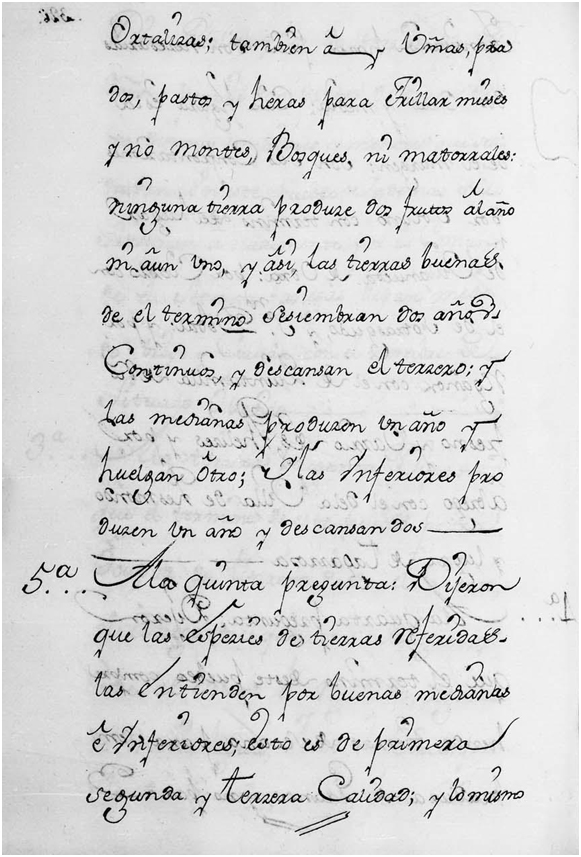 Ortalizas; tambien ã y Viñas, pra
dos, pastos y heras para Trillar mieses
y no montes, Bosques, ni matorrales:
ninguna tierra produze dos frutos al año
ni aun uno, y asi, las tierras buenas
de el termino se siembran dos años
Continuos, y descansan el terzero; y
las medianas produzen un año y
huelgan otro; y las Ynferiores pro
duzen un año y descansan dos
5.ª A la quinta pregunta: Dijeron
que las espezies de tierras referidas
las entienden por buenas medianas
e Ynferiores; esto es de primera
segunda y terzera Calidad; y lo mismo